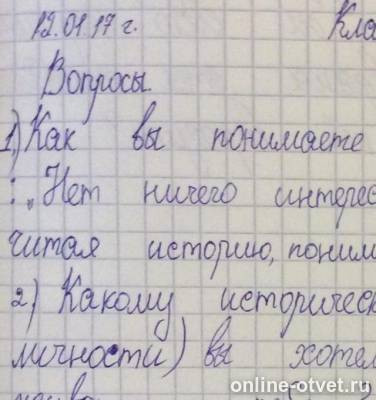 12.01.17 г. Кла
Вопросы.
1.) Как вы понимаете
: „Нет ничего интерес
читая историю, поним
2) Какому историчес
личности) вы хотел
online-otvet.ru